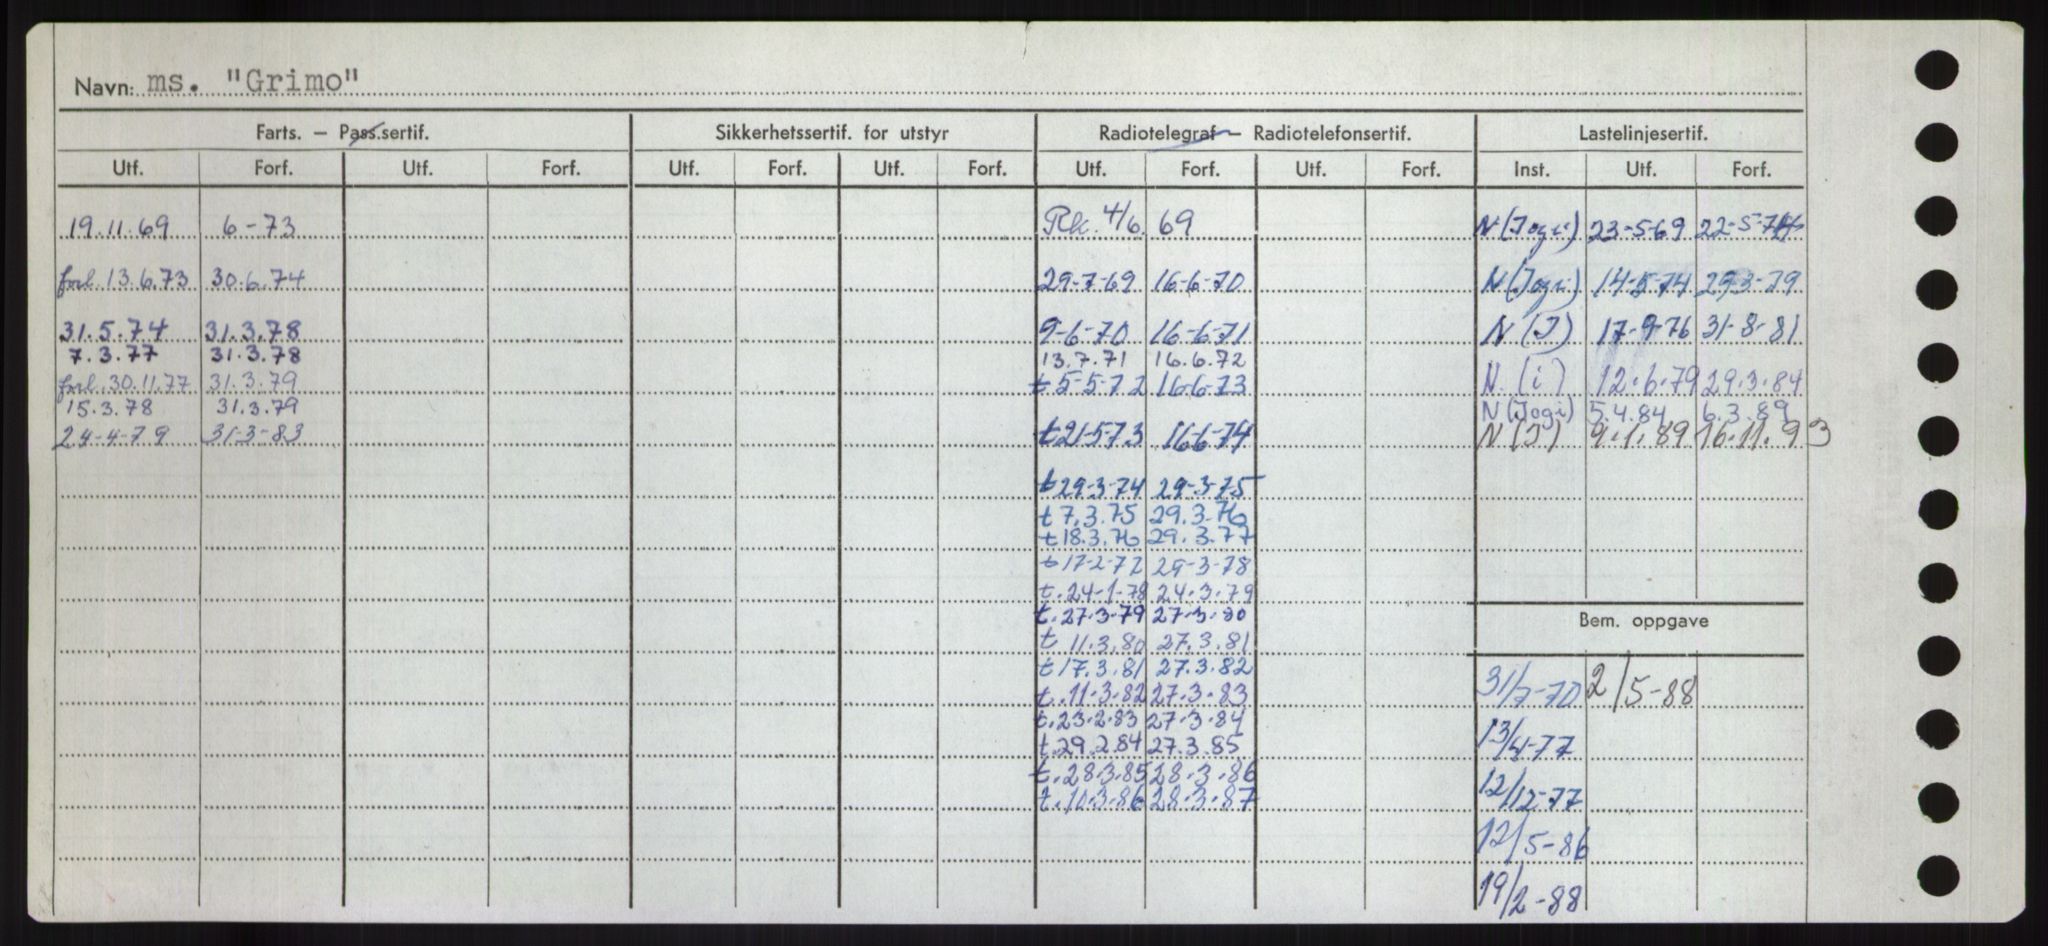 Navn: ms. "Grimo"
Farts. — Pass.sertif. Sikkerhetssertif. for utstyr Radiotelegraf — Radiotelefonsertif. Lastelinjesertif.
Utf. Forf. Utf. Forf. Utf. Forf. Utf. Forf. Utf. Forf. Utf. Forf. Inst. Utf. Forf.
19.11.69 6-73 Rk. 4/6. 69 N (Jogi) 23-5-69 22-5-74
forl. 13.6.73 30.6.74 29-7-69 16-6-70 N (Jogi) 14-5-74 29-3-79
31.5.74 31.3.78 9-6-70 16-6-71 N (J) 17-9-76 31-8-81
7.3.77 31.3.78 13.7.71 16.6.72
forl. 30.11.77 31.3.79 t 5-5-72 16-6-73 N. (i) 12.6.79 29.3.84
15.3.78 31.3.79 N (Jogi) 5.4.84 6.3.89
24-4-79 31-3-83 t 21-5-73 16-6-74 N (J) 9.1.89 16.11.93
t 29-3-74 29-3-75
t 7.3.75 29.3.76
t 18.3.76 29.3.77
t 17-2-77 29-3-78
t. 24-1-78 24.3.79
t. 27.3-79 27.3.80
Bem. oppgave
t 11.3.80 27.3.81
t 17.3.81 27.3.82
31/7-70 2/5-88
t. 11.3.82 27.3.83
t. 23.2.83 27.3.84
t. 29.2.84 27.3.85
13/4-77
t. 28.3.85 28.3.86
12/12-77
t. 10.3.86 28.3.87
12/5-86
19/2-88